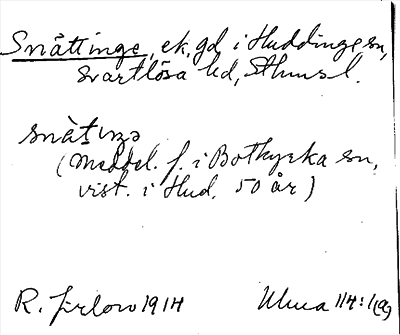 Snättinge, ek. gd i Huddinge sn,
Svartlösa hd, Sthms l.
snätɩŋə
(Meddel. f. i Botkyrka sn,
vist. i Hud. 50 år)
R. Jirlow 1914 Uluca 114:1(a)